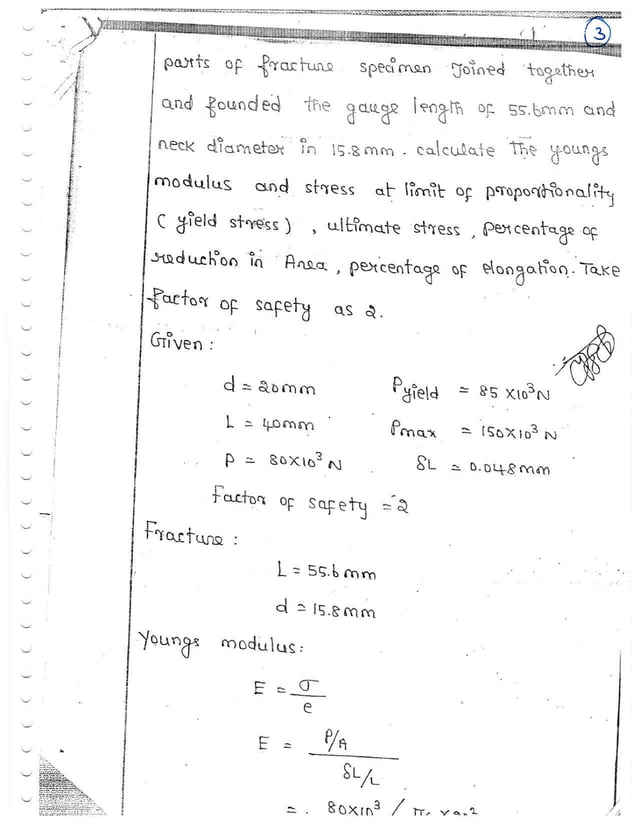 3
parts of fracture specimen joined together
and founded the gauge length of 55.6mm and
neck diameter in 15.8mm. calculate the youngs
modulus and stress at limit of proportionality
(yield stress), ultimate stress, percentage of
reduction in Area, percentage of elongation. Take
factor of safety as 2.
Given :
d = 20mm P yield = 85 x10³N
L = 40mm Pmax = 150x10³ N
P = 80x10³ N δL = 0.048mm
Factor of safety = 2
Fracture :
L = 55.6mm
d = 15.8mm
Youngs modulus:
E = σ/e
E = P/A / δL/L
= 80x10³ /